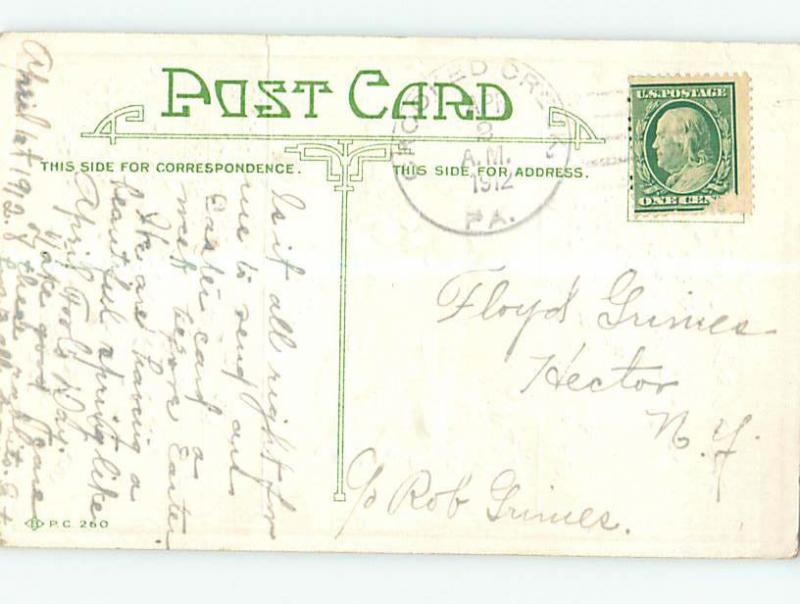 POST CARD
THIS SIDE FOR CORRESPONDENCE.
THIS SIDE FOR ADDRESS.
CROOKED CREEK
APR
2
A.M.
1912
PA.
U.S. POSTAGE
ONE CEN
Floyd Grimes
Hector
N.Y.
c/o Rob Grimes.
Is it all right for
me to send out
Easter card a
week before Easter
We are having a
beautiful spring like
April Fool's Day.
Take good care
of these
April 1st 1912.
B P.C. 260